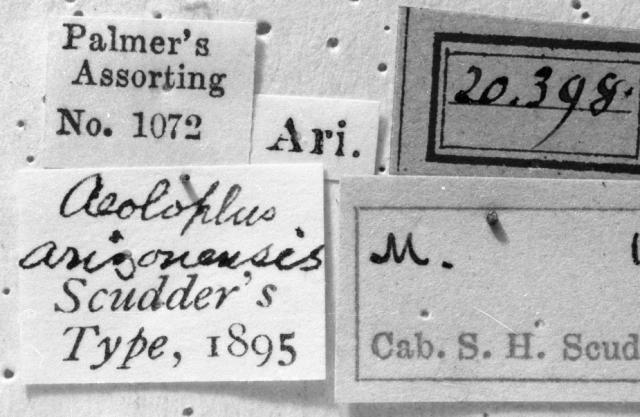 Palmer's
Assorting
No. 1072
Ari.
20.398.
Aeoloplus
arizonensis
Scudder's
Type, 1895
M.
Cab. S. H. Scud